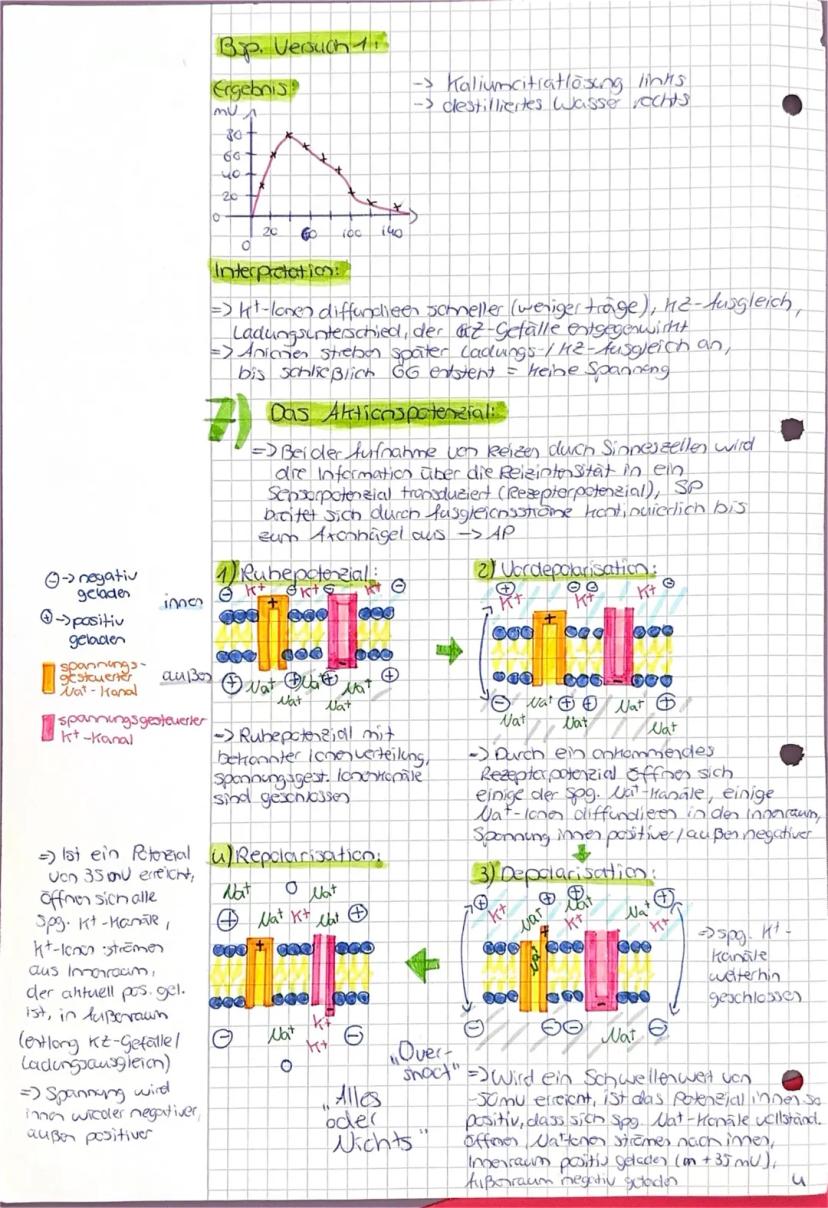 Bsp. Versuch 1:
Ergebnis:
-> Kaliumcitratlösung links
-> destilliertes Wasser rechts
mV
80
60
40
20
0
20 60 100 140
0
Interpretation:
=> K+-Ionen diffundieren schneller (weniger träge), KZ-Ausgleich,
Ladungsunterschied, der KZ-Gefälle entgegenwirkt
=> Anionen streben später Ladungs-/KZ-Ausgleich an,
bis schließlich GG entsteht = keine Spannung
7) Das Aktionspotenzial:
=> Bei der Aufnahme von Reizen durch Sinneszellen wird
die Information über die Reizintensität in ein
Sensorpotenzial transduziert (Rezeptorpotenzial), SP
breitet sich durch Ausgleichsströme kontinuierlich bis
zum Axonhügel aus -> AP
⊖ -> negativ
geladen
⊕ -> positiv
geladen
spannungs-
gesteuerter
Na+-Kanal
spannungsgesteuerter
K+-Kanal
1) Ruhepotenzial:
innen
⊖ K+ ⊖ K+ ⊖ K+ ⊖
+
-
außen
⊕ Na+ ⊕ Na+ ⊕ Na+ ⊕
Na+ Na+
-> Ruhepotenzial mit
bekannter Ionenverteilung,
spannungsgest. Ionenkanäle
sind geschlossen
2) Vordepolarisation:
⊕ ⊖ ⊖ K+ ⊖
K+ K+
+
-
⊖ Na+ ⊕ ⊕ Na+ ⊕
Na+ Na+ Na+
-> Durch ein ankommendes
Rezeptorpotenzial öffnen sich
einige der spg. Na+-Kanäle, einige
Na+-Ionen diffundieren in den Innenraum,
Spannung innen positiver / außen negativer
3) Depolarisation:
⊕ K+ ⊕ ⊕ Na+ ⊕
Na+ Na+ K+ K+
+
Na+
-
⊖ ⊖ ⊖ Na+ ⊖
=> spg. K+-
Kanäle
weiterhin
geschlossen
"Over-
shoot"
=> Wird ein Schwellenwert von
-50mV erreicht, ist das Potenzial innen so
positiv, dass sich spg. Na+-Kanäle vollständ.
öffnen, Na+-Ionen strömen nach innen,
Innenraum positiv geladen (m +35mV),
Außenraum negativ geladen
4) Repolarisation:
Na+ O Na+
⊕ Na+ K+ Na+ ⊕
+
-
K+
⊖ Na+ K+ ⊖
O
"Alles
oder
Nichts"
=> Ist ein Potenzial
von 35mV erreicht,
öffnen sich alle
spg. K+-Kanäle,
K+-Ionen strömen
aus Innenraum,
der aktuell pos. gel.
ist, in Außenraum
(entlang KZ-Gefälle/
Ladungsausgleich)
=> Spannung wird
innen wieder negativer,
außen positiver
4